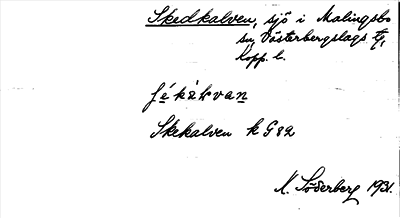 Skedkalven, sjö i Malingsbo
sn, Västerbergslags tg,
Kopp. l.
Skekalven k G82
N. Söderberg 1931.